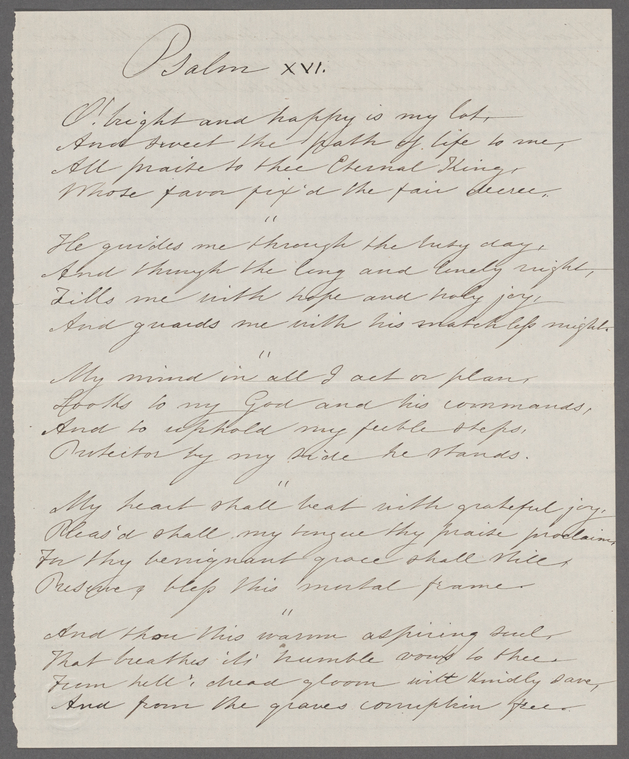 Psalm XVI.
O! bright and happy is my lot,
And sweet the path of life to me,
All praise to thee Eternal King,
Whose favor fix'd the fair decree.
"
He guides me through the busy day,
And through the long and lonely night,
Fills me with hope and holy joy,
And guards me with his matchless might.
"
My mind in all I act or plan,
Looks to my God and his commands,
And to uphold my feeble steps,
Protector by my side he stands.
"
My heart shall beat with grateful joy,
Pleas'd shall my tongue thy praise proclaim,
For thy benignant grace shall still,
Preserve & bless this mortal frame.
"
And thou this warm aspiring soul,
That breathes it's humble vows to thee
From hell's dread gloom wilt kindly save,
And from the graves corruption free.